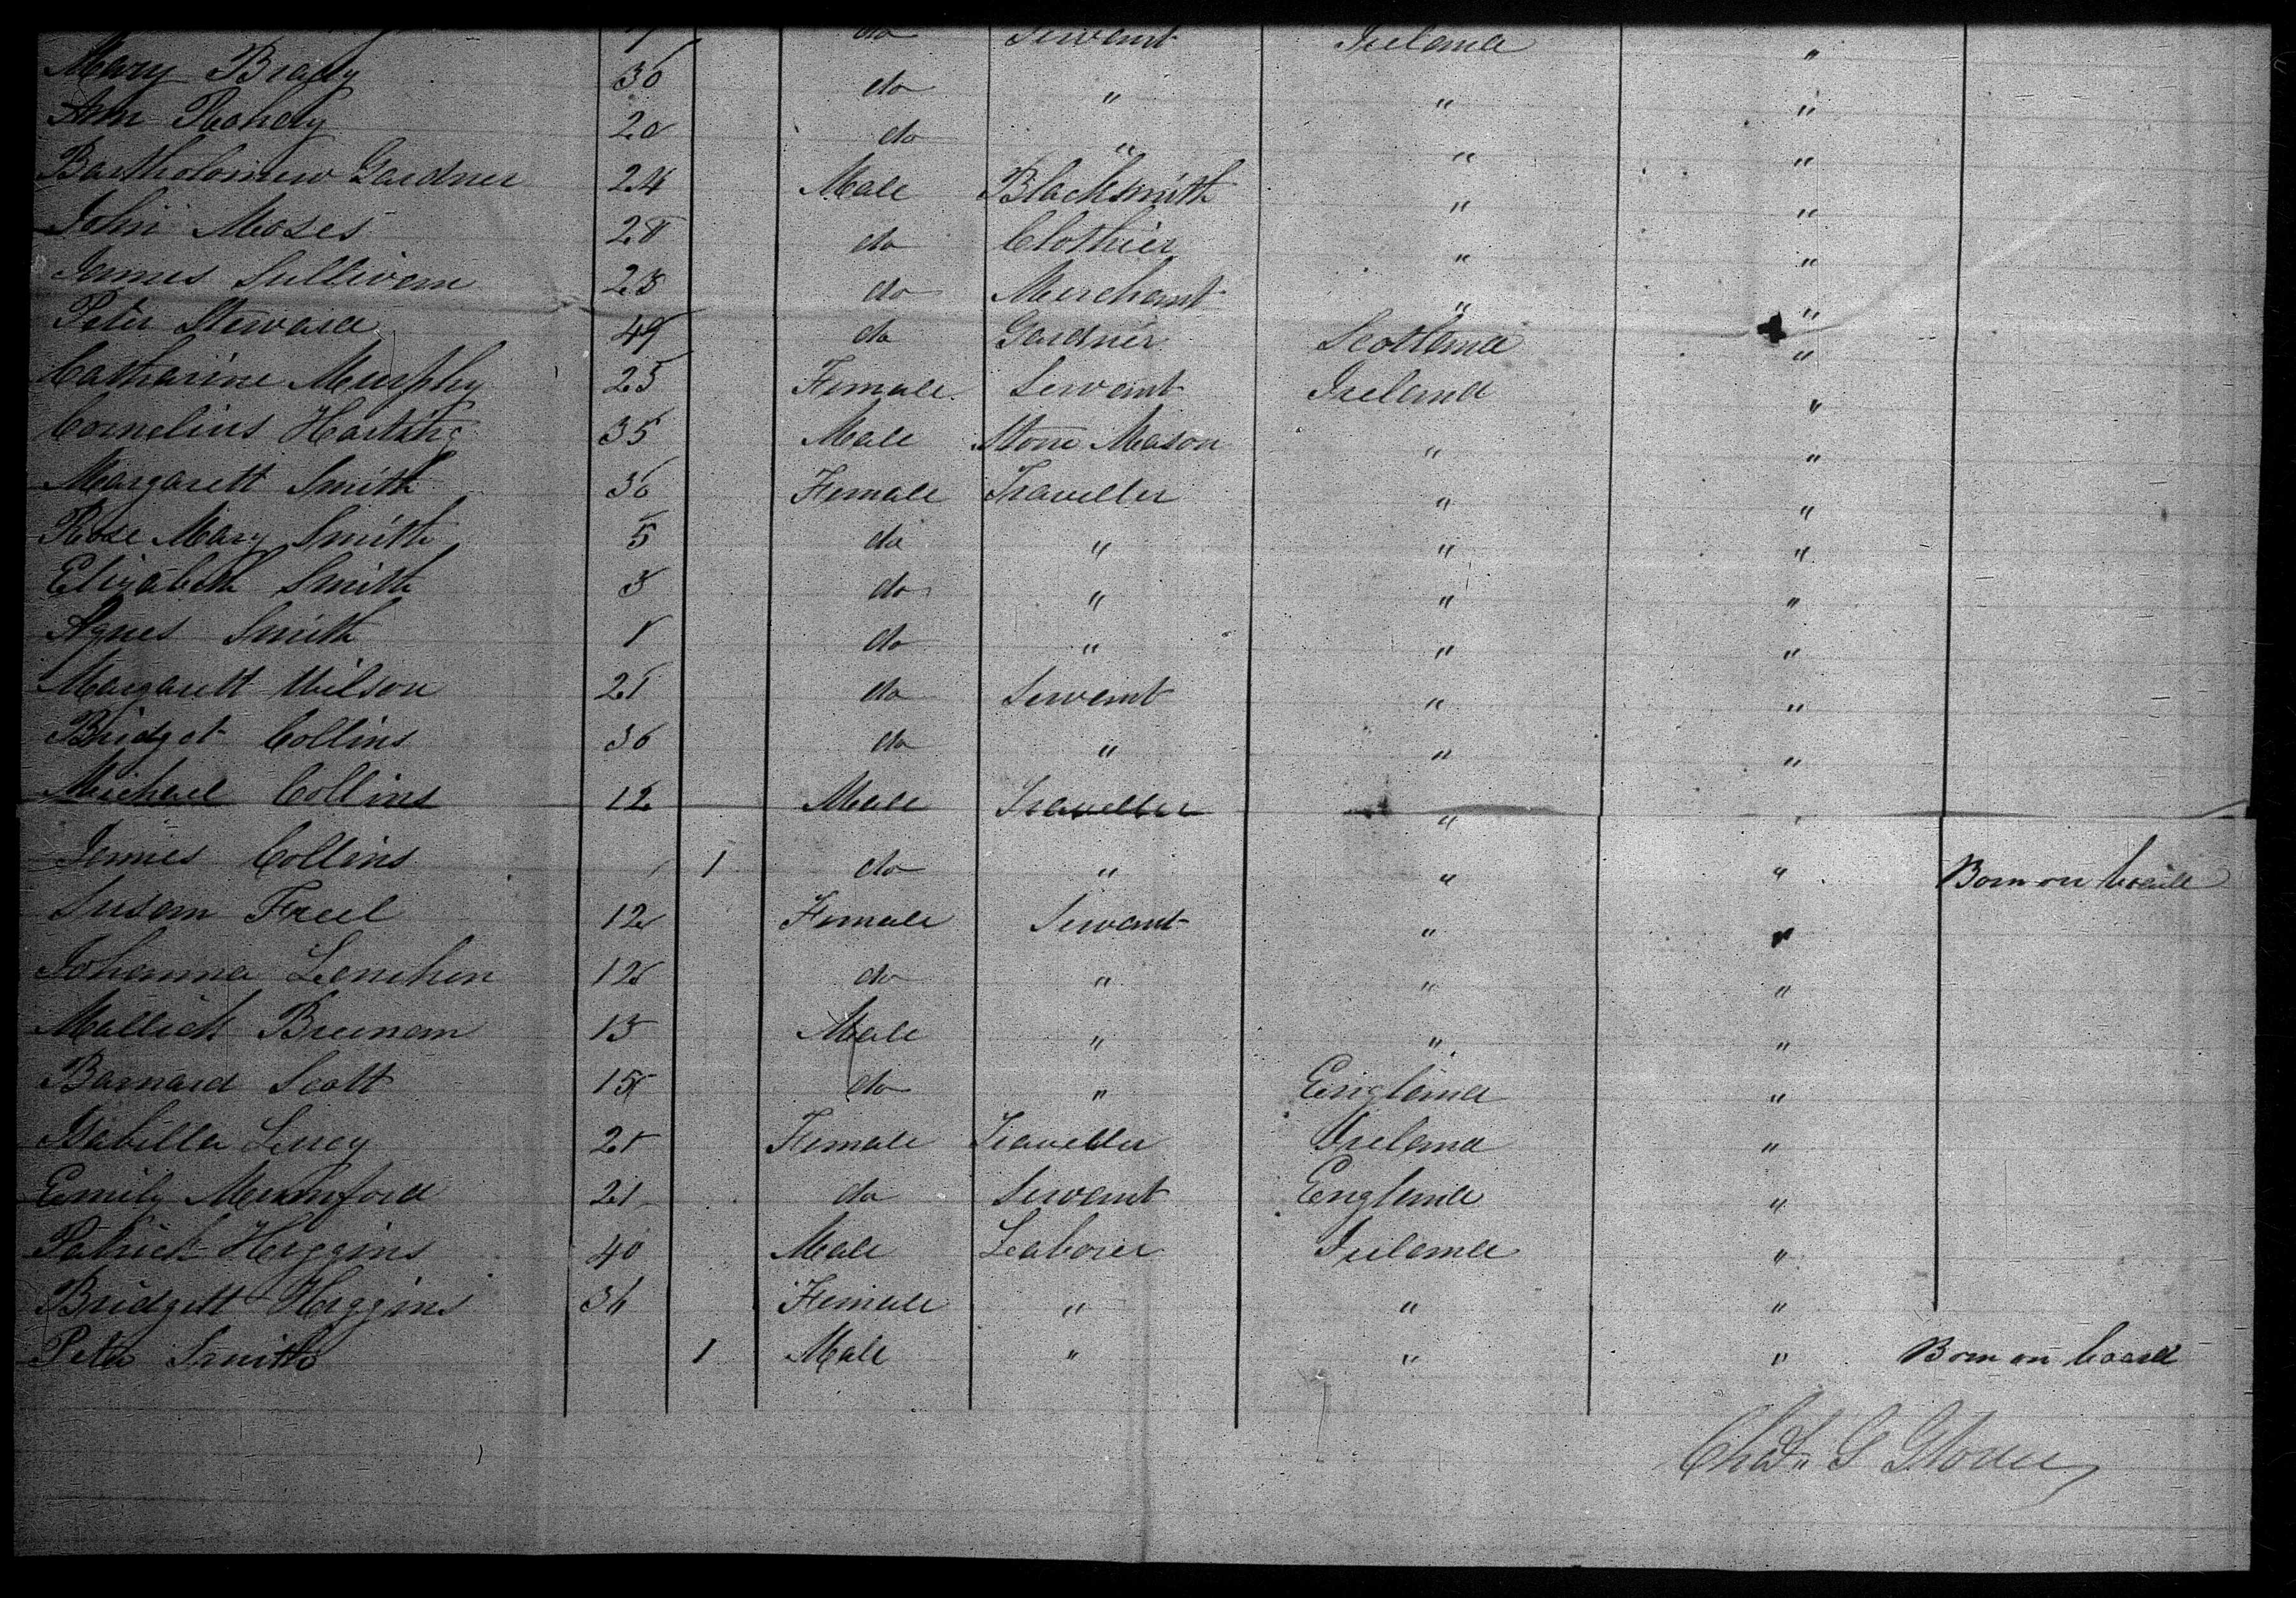 do Servant Ireland "
Mary Brady 30 do " " "
Ann 20 do " " "
Bartholomew Gardner 24 Male Blacksmith " "
John Moses 28 do Clothier " "
James Sullivan 28 do Merchant " "
Peter Steward 49 do Gardner Scotland "
Catharine Murphy 25 Female Servant Ireland "
Cornelius Harting 35 Male Stone Mason " "
Margarett Smith 36 Female Traveller " "
Rose Mary Smith 5 do " " "
Elizabeth Smith 3 do " " "
Agnes Smith 1 do " " "
Margarett Wilson 21 do Servant " "
Bridget Collins 36 do " " "
Michael Collins 12 Male Traveller "
James Collins 1 do " " " Born on board
Susan Freel 12 Female Servant " "
Johanna Lenehen 12 do " " "
Brennan 13 Male " " "
Barnard Scott 15 do " England "
Isabella Lucy 21 Female Traveller Ireland "
Emily Mumford 21 do Servant England "
Patrick Higgins 40 Male Laborer Ireland "
Bridgett Higgins 36 Female " " "
Peter Smith 1 Male " " " Born on board
Chas. G Glover